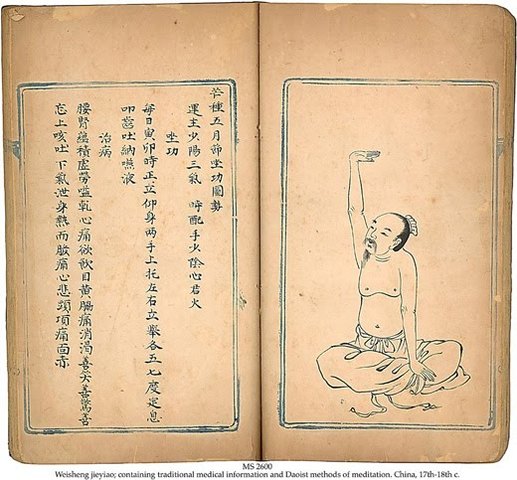 芒種五月節坐功圖勢
運主少陽三氣 時配手少陰心君火
坐功
每日寅卯時正立仰身兩手上托左右立舉各五七度定息
叩齒吐納嚥液
治病
腰腎蘊積虛勞嗌乹心痛欲飲目黃腸痛消渴善笑善驚善
忘上咳吐下氣泄身熱而股痛心悲頭項痛面赤
MS 2600
Weisheng jieyiao; containing traditional medical information and Daoist methods of meditation. China, 17th-18th c.